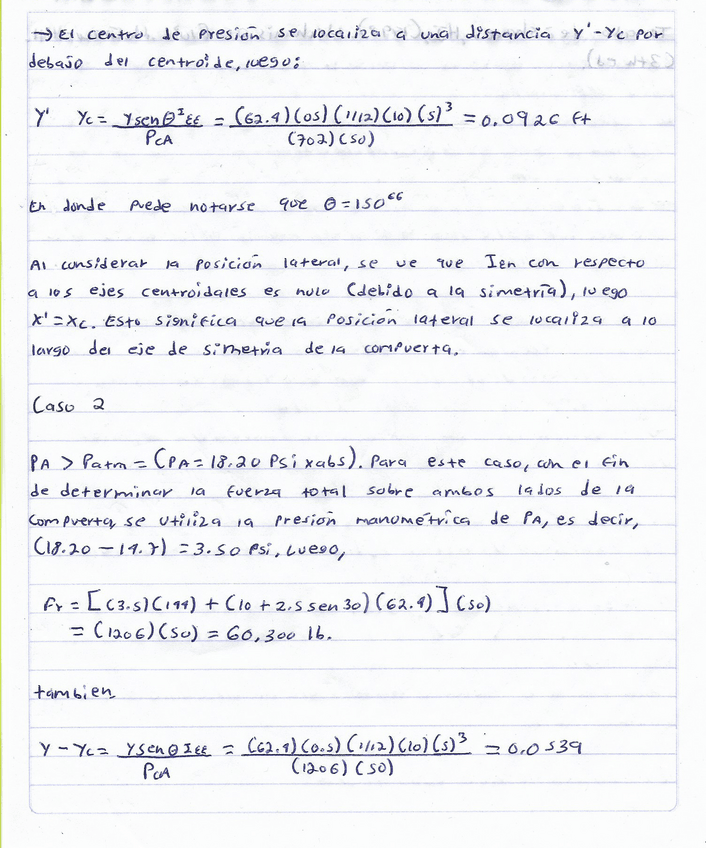 → El centro de presión se localiza a una distancia y'-yc por
debajo del centroide, luego:
y' yc = γsenθ Iεε / PcA = (62.4)(05)(1/12)(10)(5)³ / (702)(50) = 0.0926 ft
En donde puede notarse que θ = 150°
Al considerar la posición lateral, se ve que Iεn con respecto
a los ejes centroidales es nulo (debido a la simetría), luego
x' = xc. Esto significa que la posición lateral se localiza a lo
largo del eje de simetría de la compuerta.
Caso 2
PA > Patm = (PA = 18.20 Psi xabs). Para este caso, con el fin
de determinar la fuerza total sobre ambos lados de la
compuerta, se utiliza la presión manométrica de PA, es decir,
(18.20 - 14.7) = 3.50 psi, Luego,
Fr = [(3.5)(144) + (10 + 2.5 sen 30)(62.4)](50)
= (1206)(50) = 60,300 lb.
tambien
y - yc = γsenθ Iεε / PcA = (62.4)(0.5)(1/12)(10)(5)³ / (1206)(50) = 0.0539